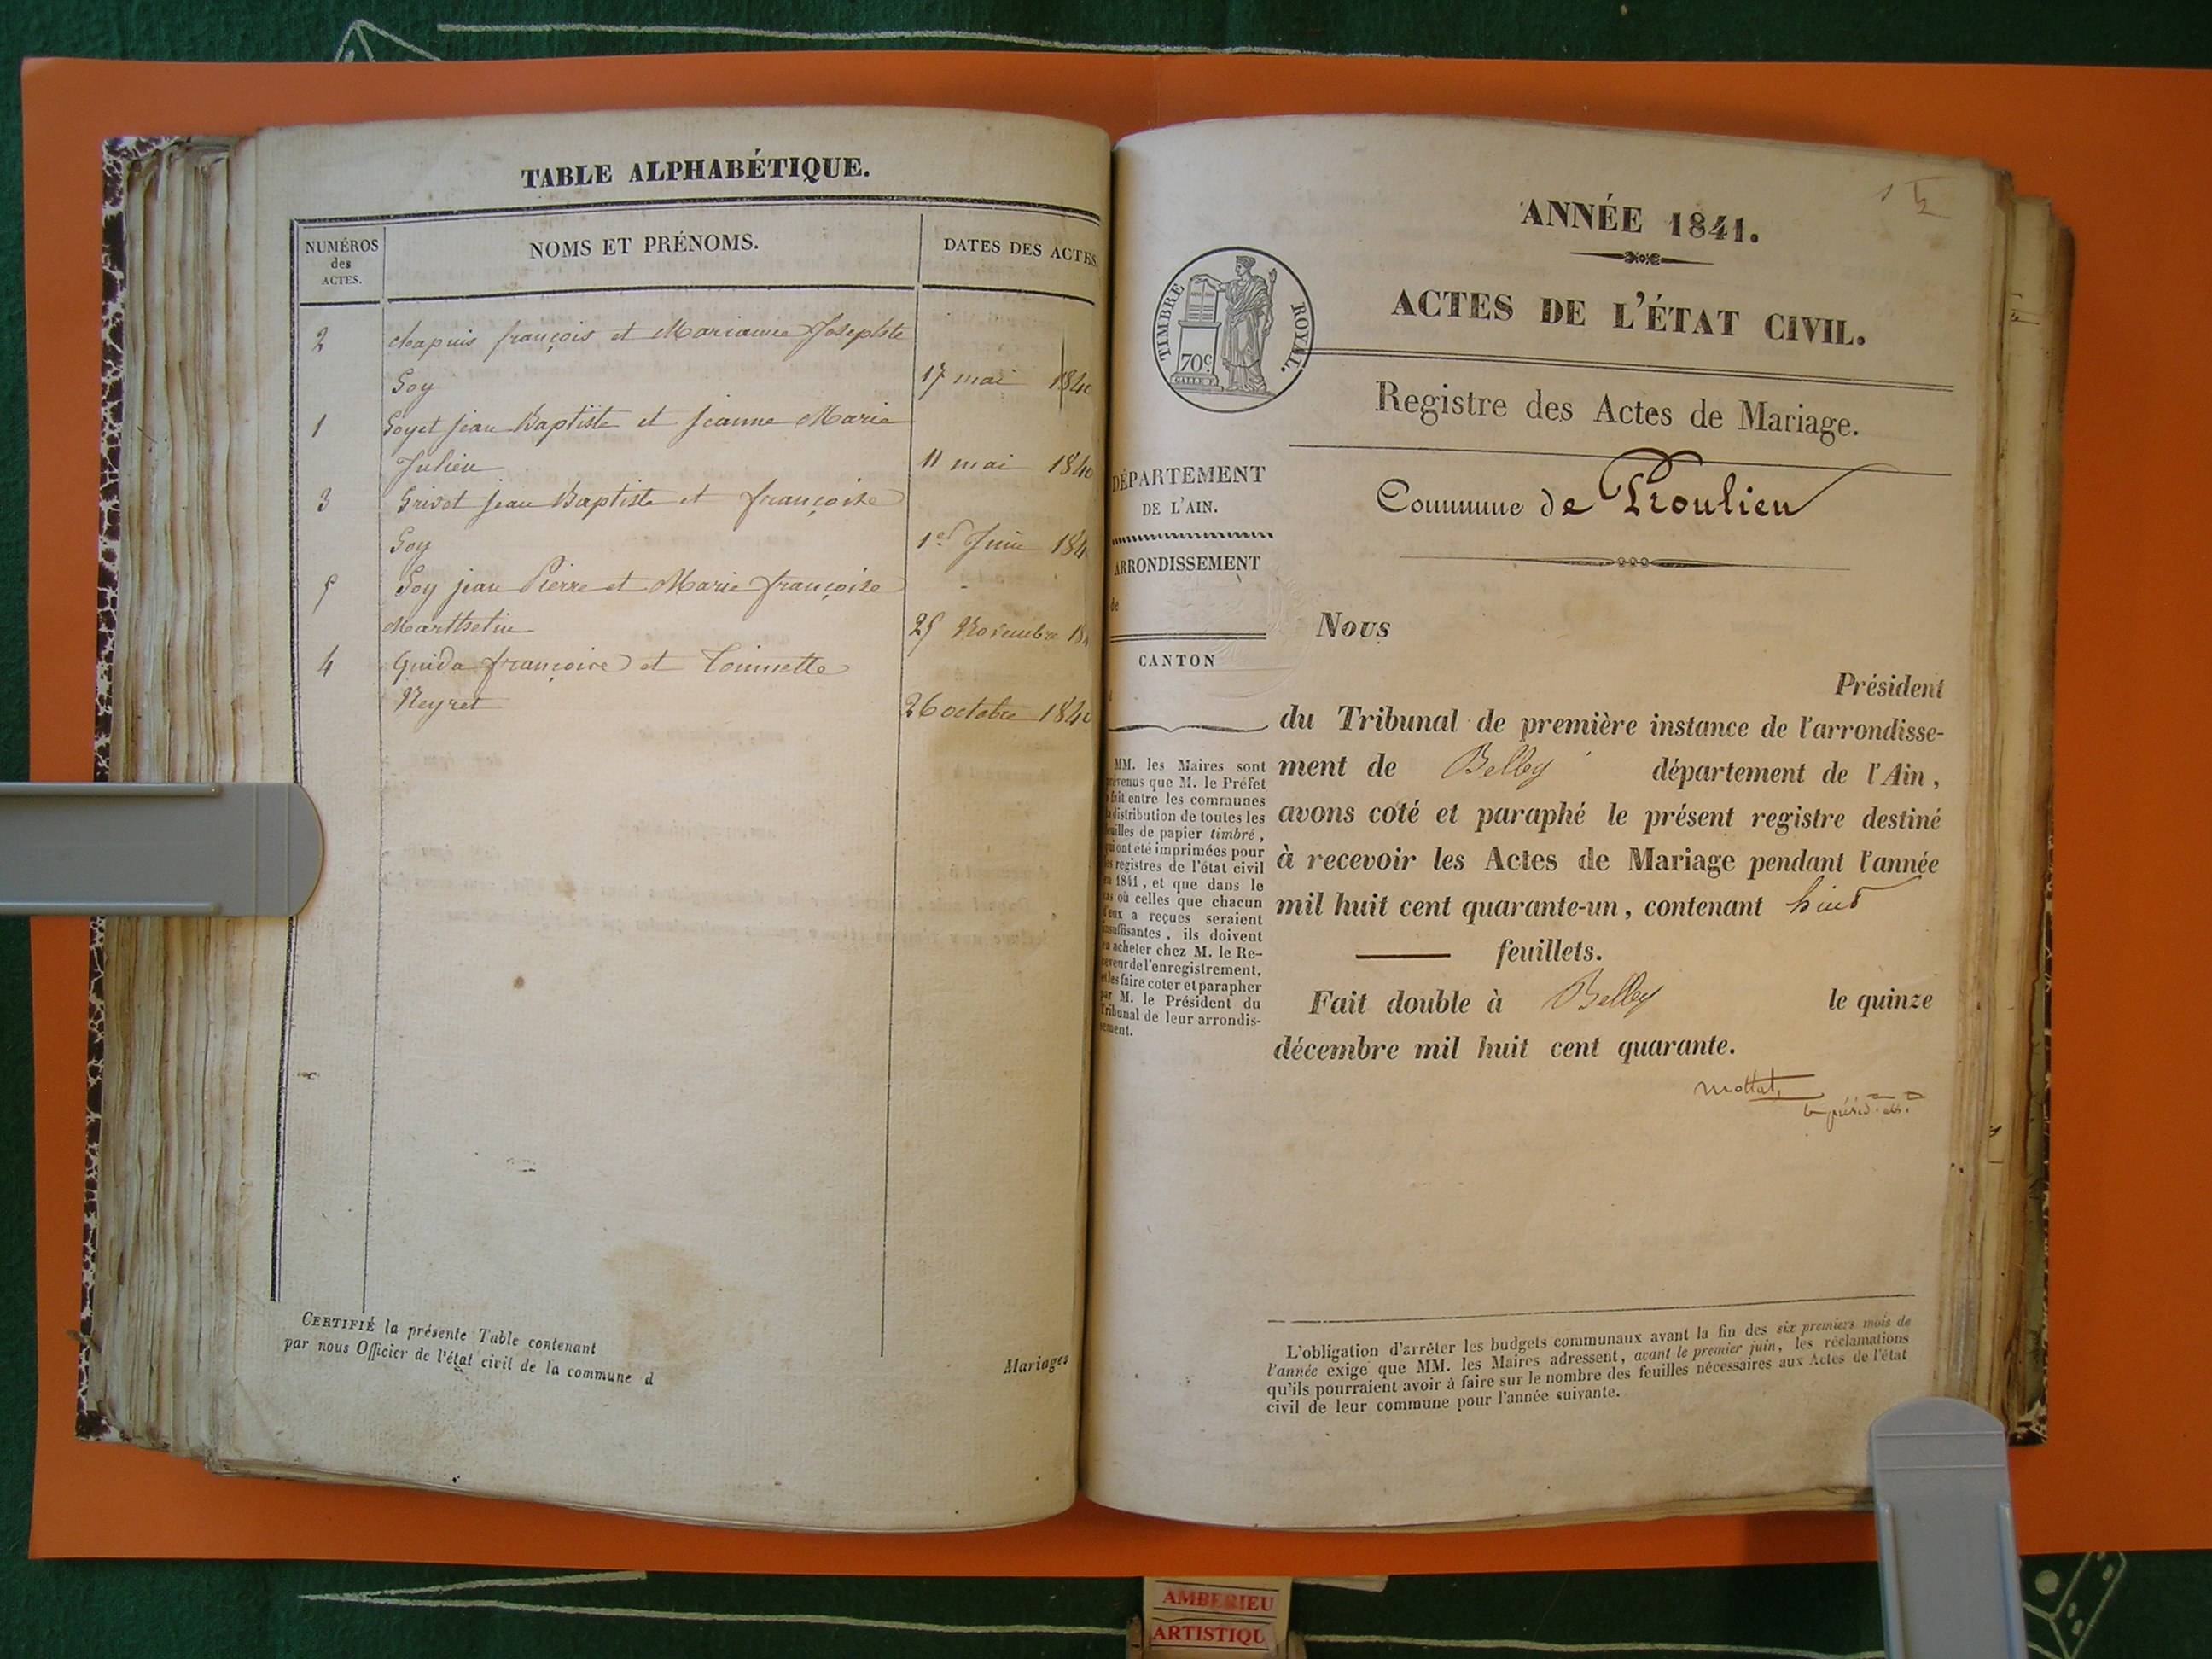 TABLE ALPHABÉTIQUE.
NUMÉROS
des
ACTES.
NOMS ET PRÉNOMS.
DATES DES ACTES.
2 chapuis françois et Marianne Josephte
Goy 17 mai 1840
1 Goyet jean Baptiste et jeanne Marie
Julien 11 mai 1840
3 Grivet jean Baptiste et françoise
Goy 1er Juin 184
5 Goy jean Pierre et Marie françoise
25 Novembre 18
4 Guida françoise et Toinnette
Neyret 26 octobre 1840
CERTIFIÉ la présente Table contenant
Mariages
par nous Officier de l'état civil de la commune d
ANNÉE 1841.
TIMBRE ROYAL.
70c
ACTES DE L'ÉTAT CIVIL.
Registre des Actes de Mariage.
DÉPARTEMENT
DE L'AIN.
ARRONDISSEMENT
de
CANTON
d
MM. les Maires sont
prévenus que M. le Préfet
a fait entre les communes
la distribution de toutes les
feuilles de papier timbré,
qui ont été imprimées pour
les registres de l'état civil
en 1841, et que dans le
cas où celles que chacun
d'eux a reçues seraient
insuffisantes, ils doivent
en acheter chez M. le Re-
ceveur de l'enregistrement,
et les faire coter et parapher
par M. le Président du
Tribunal de leur arrondis-
sement.
Commune de Proulieu
Nous
Président
du Tribunal de première instance de l'arrondisse-
ment de Belley département de l'Ain,
avons coté et paraphé le présent registre destiné
à recevoir les Actes de Mariage pendant l'année
mil huit cent quarante-un, contenant huit
feuillets.
Fait double à Belley le quinze
décembre mil huit cent quarante.
L'obligation d'arrêter les budgets communaux avant la fin des six premiers mois de
l'année exige que MM. les Maires adressent, avant le premier juin, les réclamations
qu'ils pourraient avoir à faire sur le nombre des feuilles nécessaires aux Actes de l'état
civil de leur commune pour l'année suivante.
AMBERIEU
ARTISTIQU